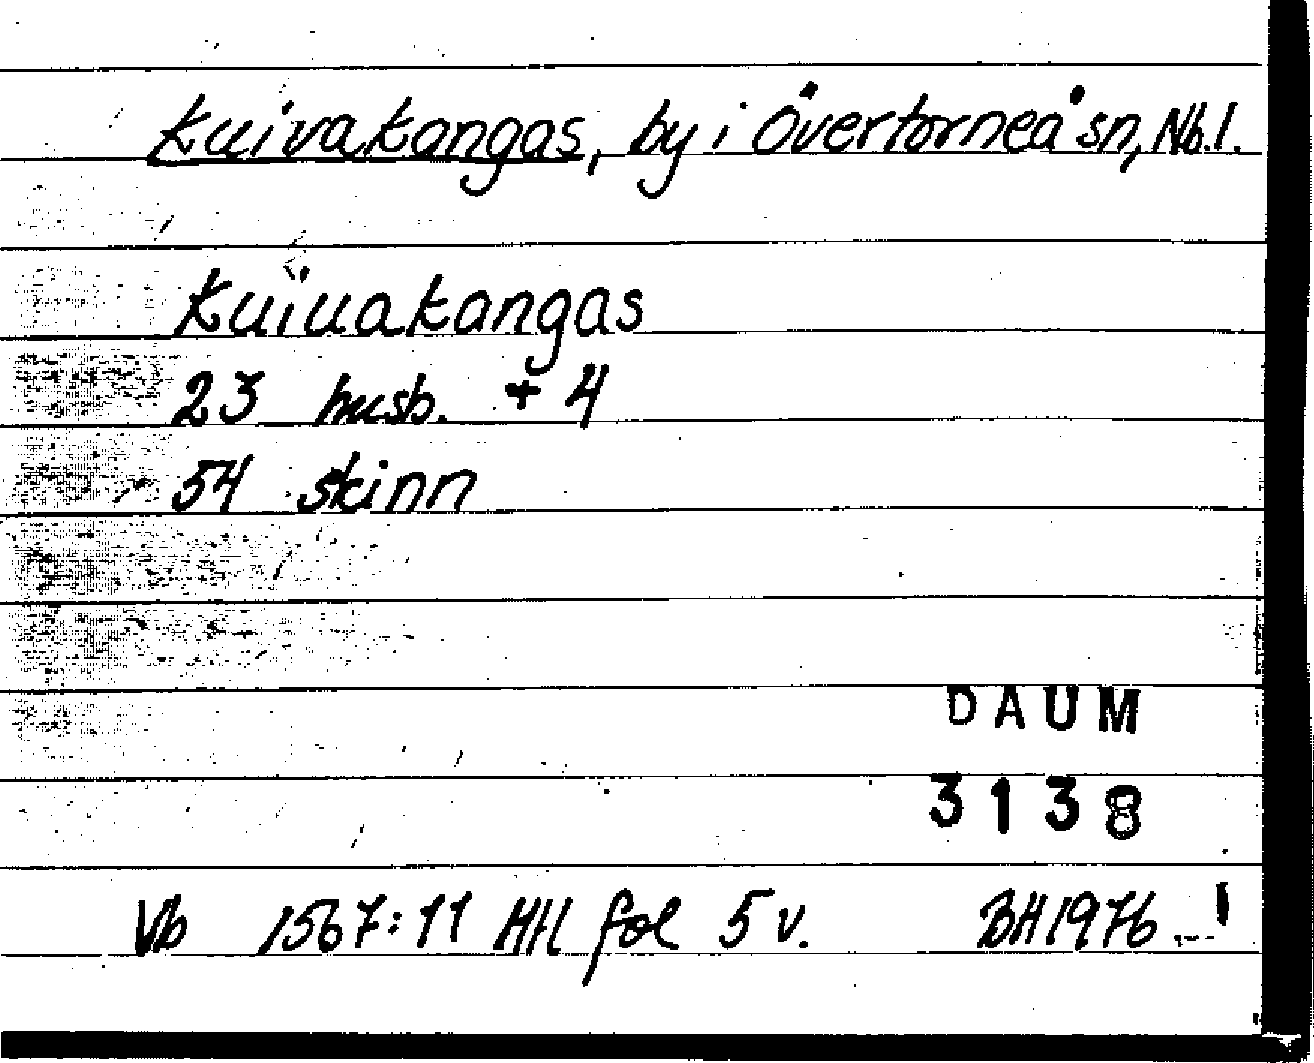 Kuivakangas, by i Övertorneå sn, Nb.l.
Kuïuakangas
23 husb. + 4
54 skinn
DAUM
3138
Vb 1567:11 HH fol 5 v. BH1976